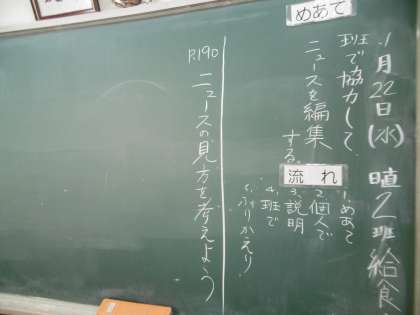 1月22日(水) 日直 2班 給食
めあて
班で協力して、
ニュースを編集
する。
流れ
1.めあて
2.個人で
3.説明
4.班で
5.ふりかえり
P.190
ニュースの見方を考えよう